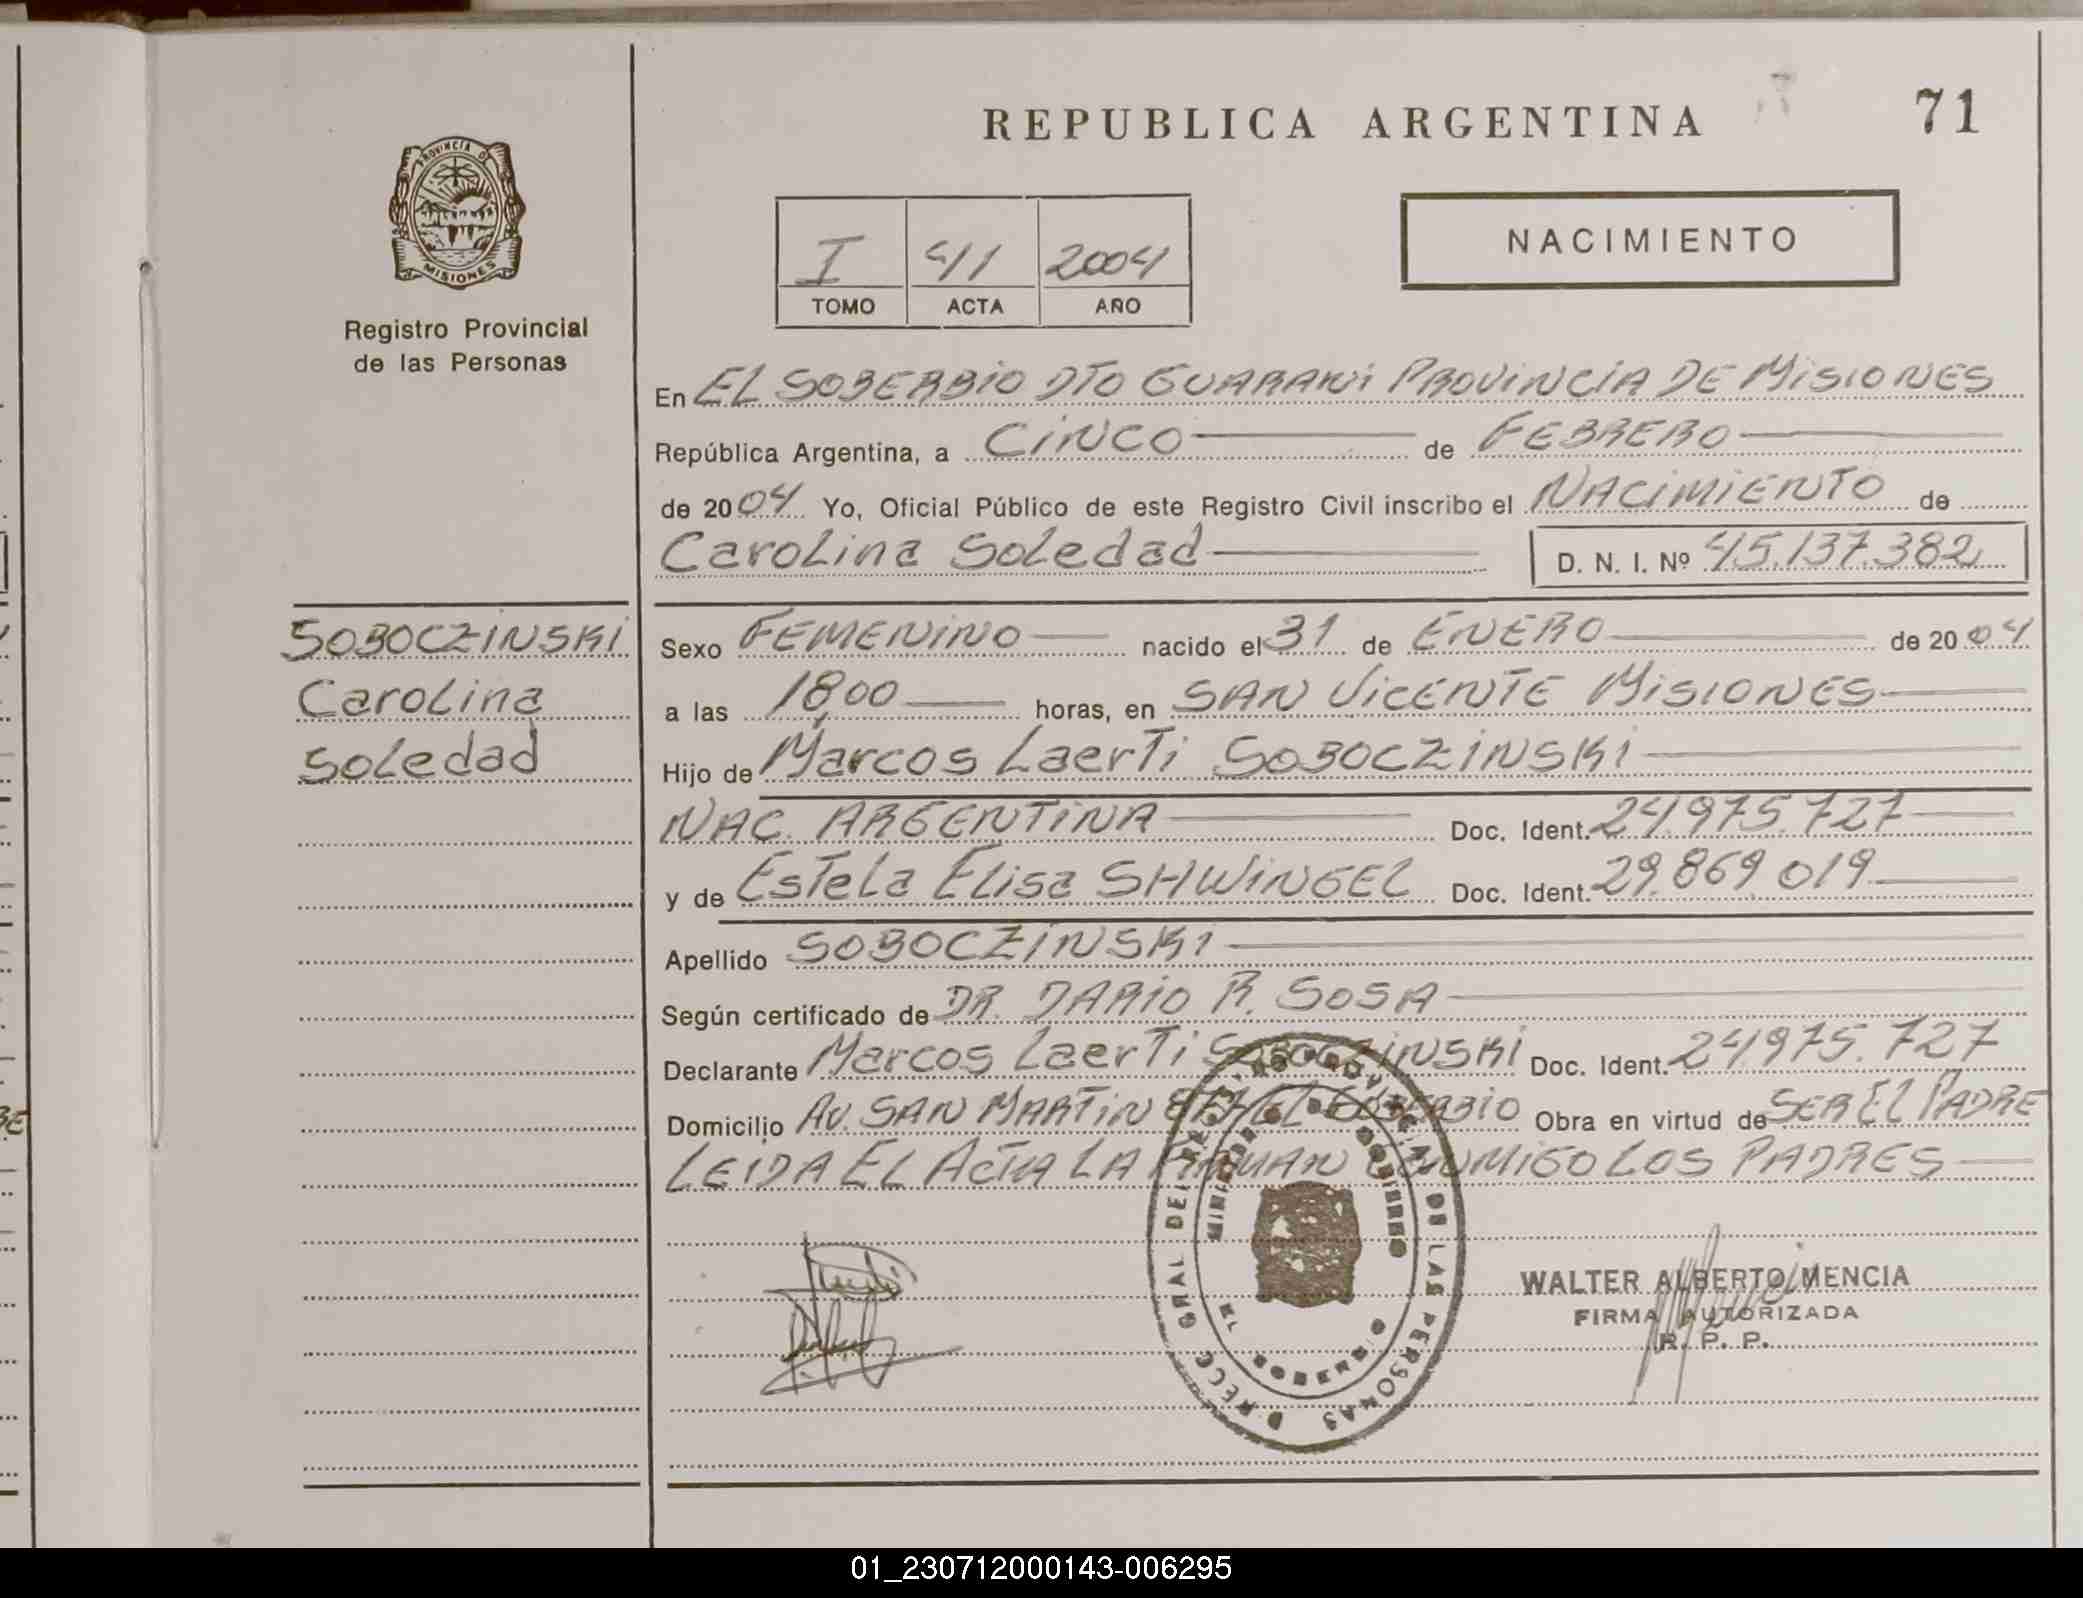 REPUBLICA ARGENTINA 71
PROVINCIA DE
MISIONES
Registro Provincial
de las Personas
NACIMIENTO
I 41 2004
TOMO ACTA AÑO
En EL SOBERBIO DTO GUARANI PROVINCIA DE MISIONES
República Argentina, a CINCO de FEBRERO
de 2004 Yo, Oficial Público de este Registro Civil inscribo el NACIMIENTO de
Carolina Soledad D. N. I. Nº 45.137.382
SOBOCZINSKI
Carolina
Soledad
Sexo FEMENINO nacido el 31 de ENERO de 2004
a las 18,00 horas, en SAN VICENTE MISIONES
Hijo de Marcos Laerti SOBOCZINSKI
NAC. ARGENTINA Doc. Ident. 24.975.727
y de Estela Elisa SHWINGEL Doc. Ident. 29.869.019
Apellido SOBOCZINSKI
Según certificado de DR. DARIO R. SOSA
Declarante Marcos Laerti SOBOCZINSKI Doc. Ident. 24.975.727
Domicilio AV. SAN MARTIN EL SOBERBIO Obra en virtud de SER EL PADRE
LEIDA EL ACTA LA FIRMAN CONMIGO LOS PADRES
DE LAS PERSONAS
EL SOBERBIO
WALTER ALBERTO MENCIA
FIRMA AUTORIZADA
R. P. P.
01_230712000143-006295